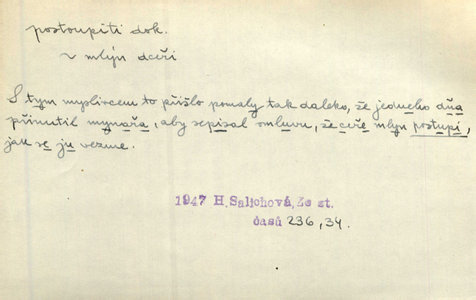 postoupiti dok.
v mlýn dceři
S tym myslivcem to přišlo pomaly tak daleko, že jedneho dňa
přinutil mynařa, aby sepisal smluvu, že ceře mlyn postupi,
jak se ju vezme.
1947 H. Salichová, Ze st.
časů 236, 34.